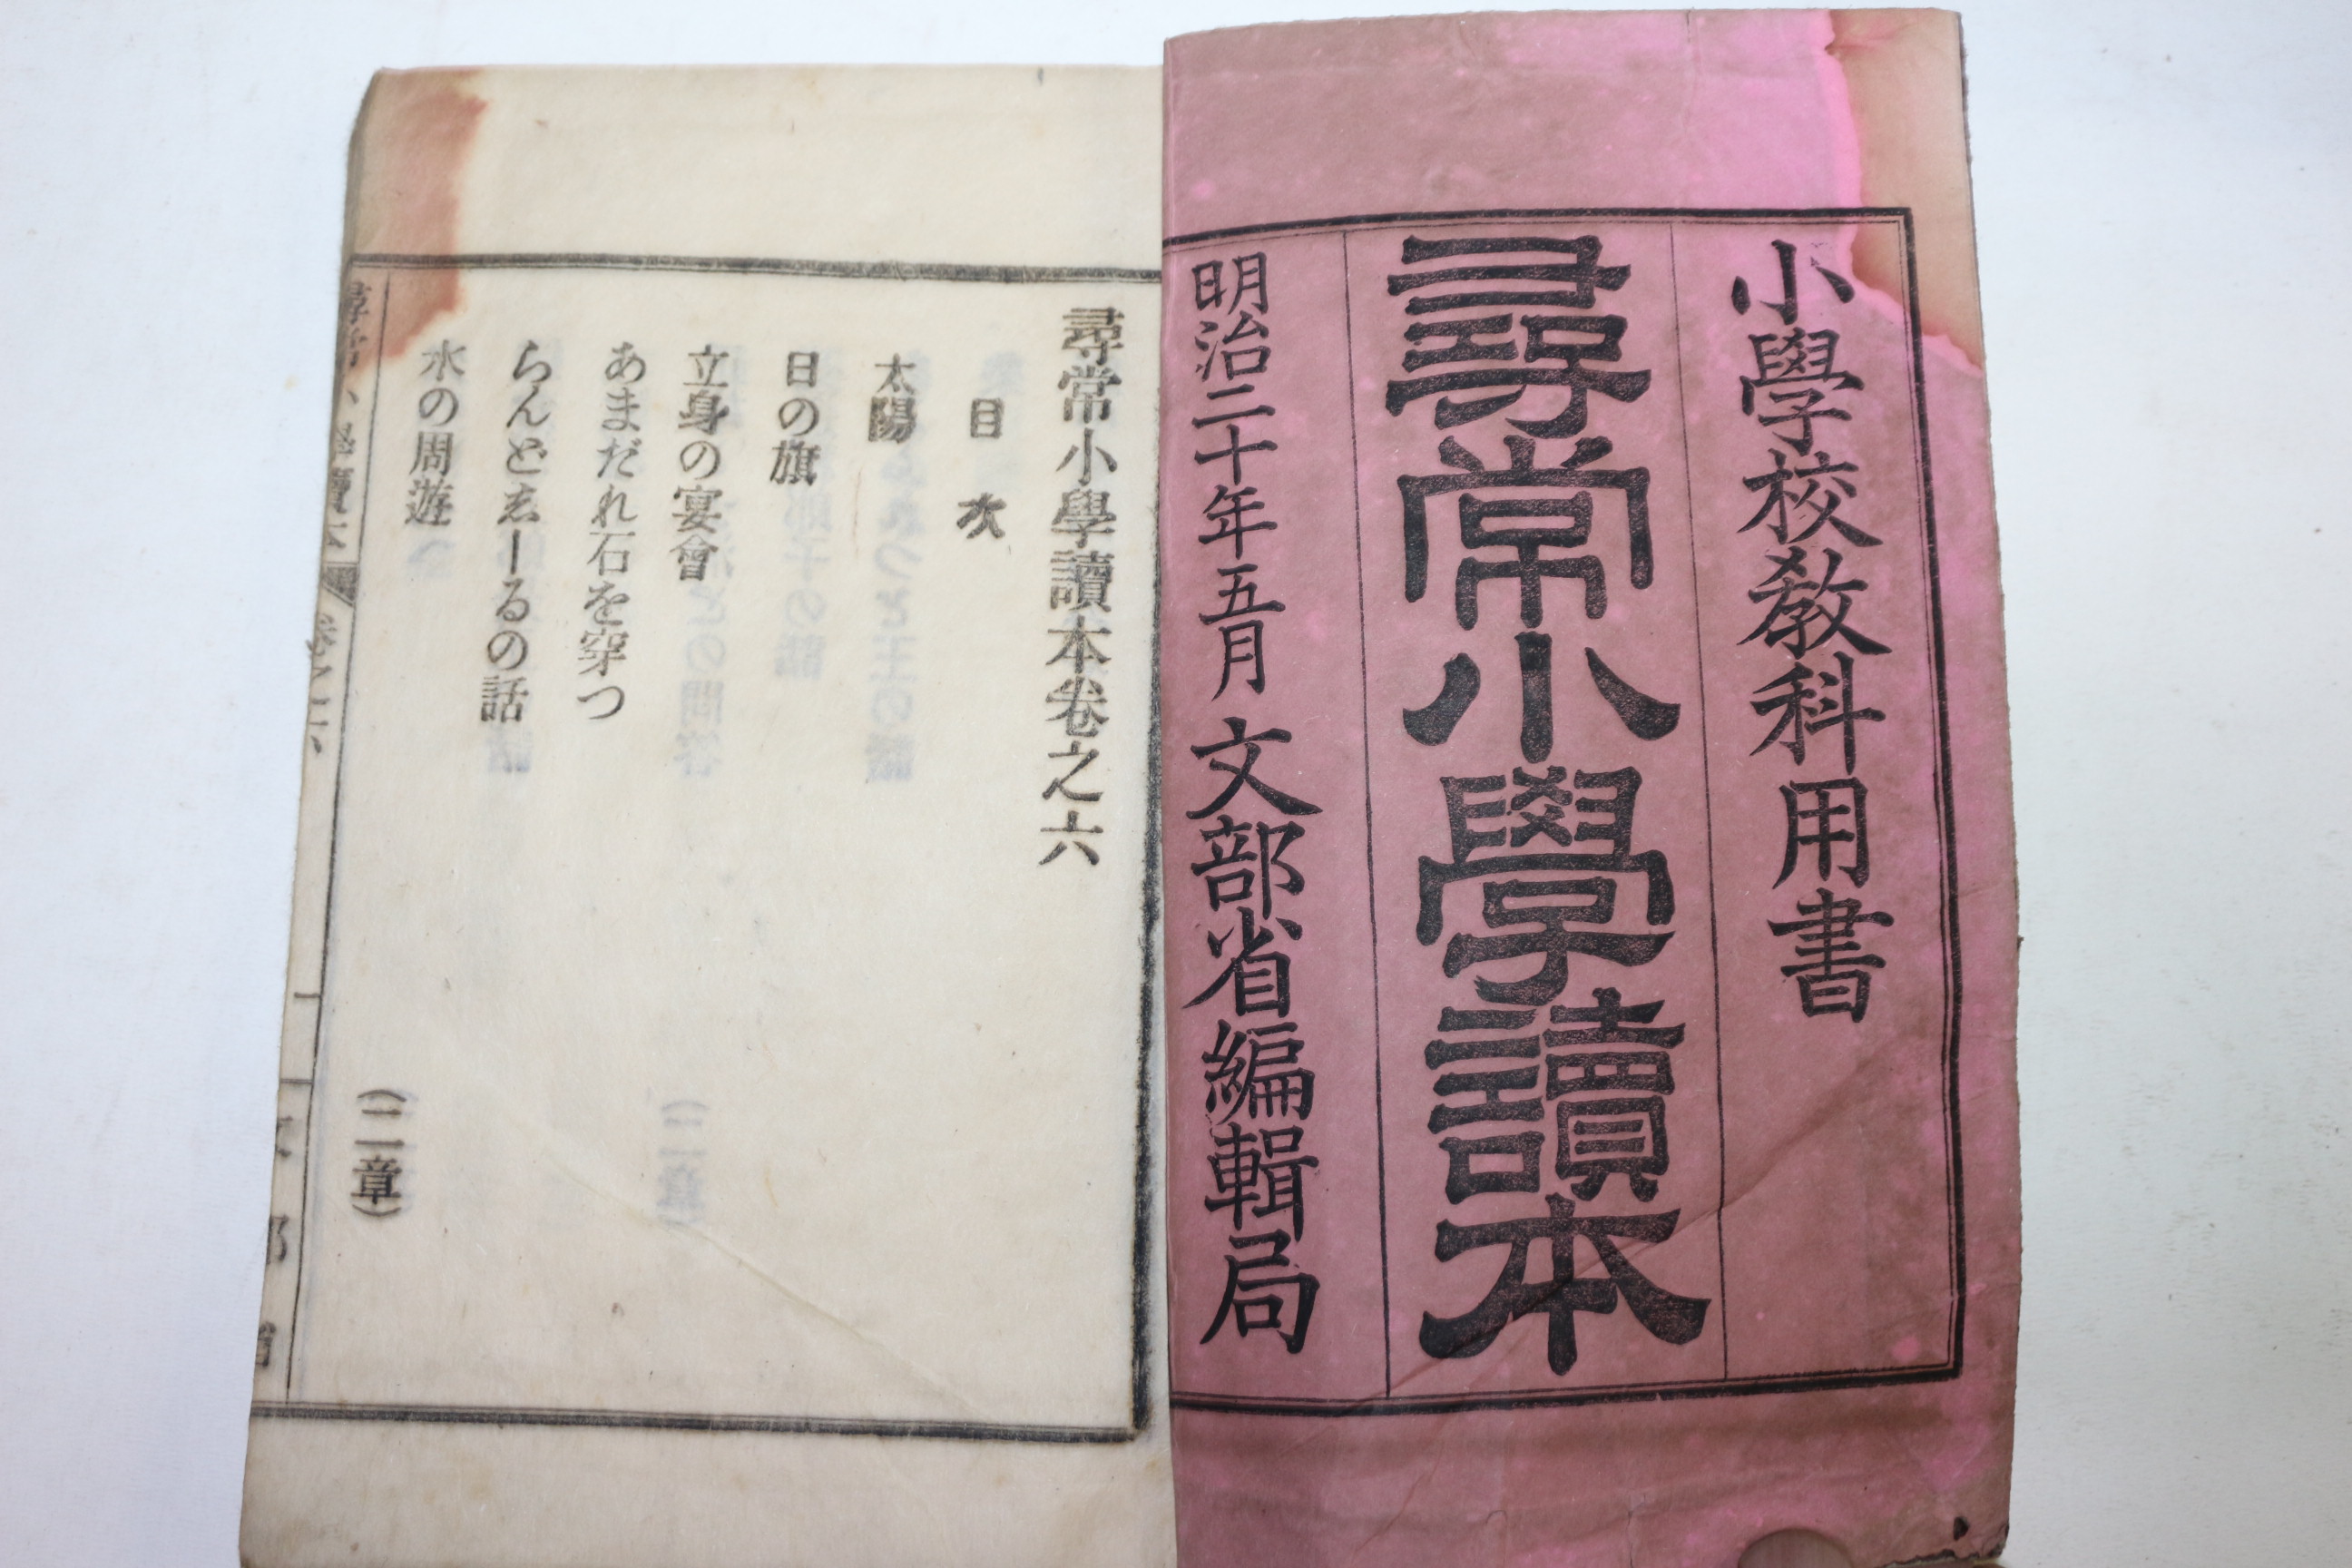 小學校敎科用書
尋常小學讀本
明治二十年五月 文部省編輯局
尋常小學讀本卷之六
目次
太陽
日の旗
立身の宴會
あまだれ石を穿つ
らんどゑーるの話
水の周遊
（二章）
尋常小學讀本 卷之六 一 文部省